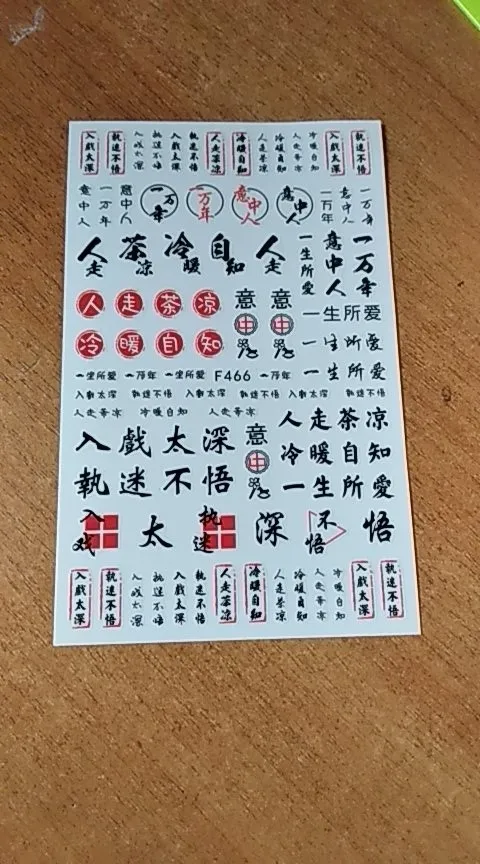 入戲太深 執迷不悟 入戲太深 執迷不悟 入戲太深 執迷不悟 人走茶凉 冷暖自知 人走茶凉 冷暖自知 人走茶凉 冷暖自知 入戲太深 執迷不悟
意中人 一万年 意中人 一万年 一万年 意中人 意中人 一万年 意中人 一万年
人走 茶凉 冷暖 自知 人走 一生所愛 意中人 一万年
人走茶凉 意中 意中
冷暖自知
一生所爱
一生所爱
一生所爱
一生所爱 一万年 一生所爱 F466 一万年
入戲太深 執迷不悟 入戲太深 執迷不悟
人走茶凉 冷暖自知 人走茶凉
入戲太深 意中
執迷不悟
人走茶凉
冷暖自知
一生所愛
入戏 太 执迷 深 不悟 悟
入戲太深 執迷不悟 入戲太深 執迷不悟 入戲太深 執迷不悟 人走茶凉 冷暖自知 人走茶凉 冷暖自知 人走茶凉 冷暖自知 入戲太深 執迷不悟